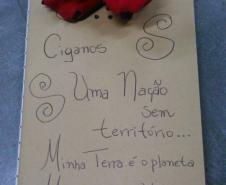 Ciganos
Uma Nação
sem
território...
Minha Terra é o planeta